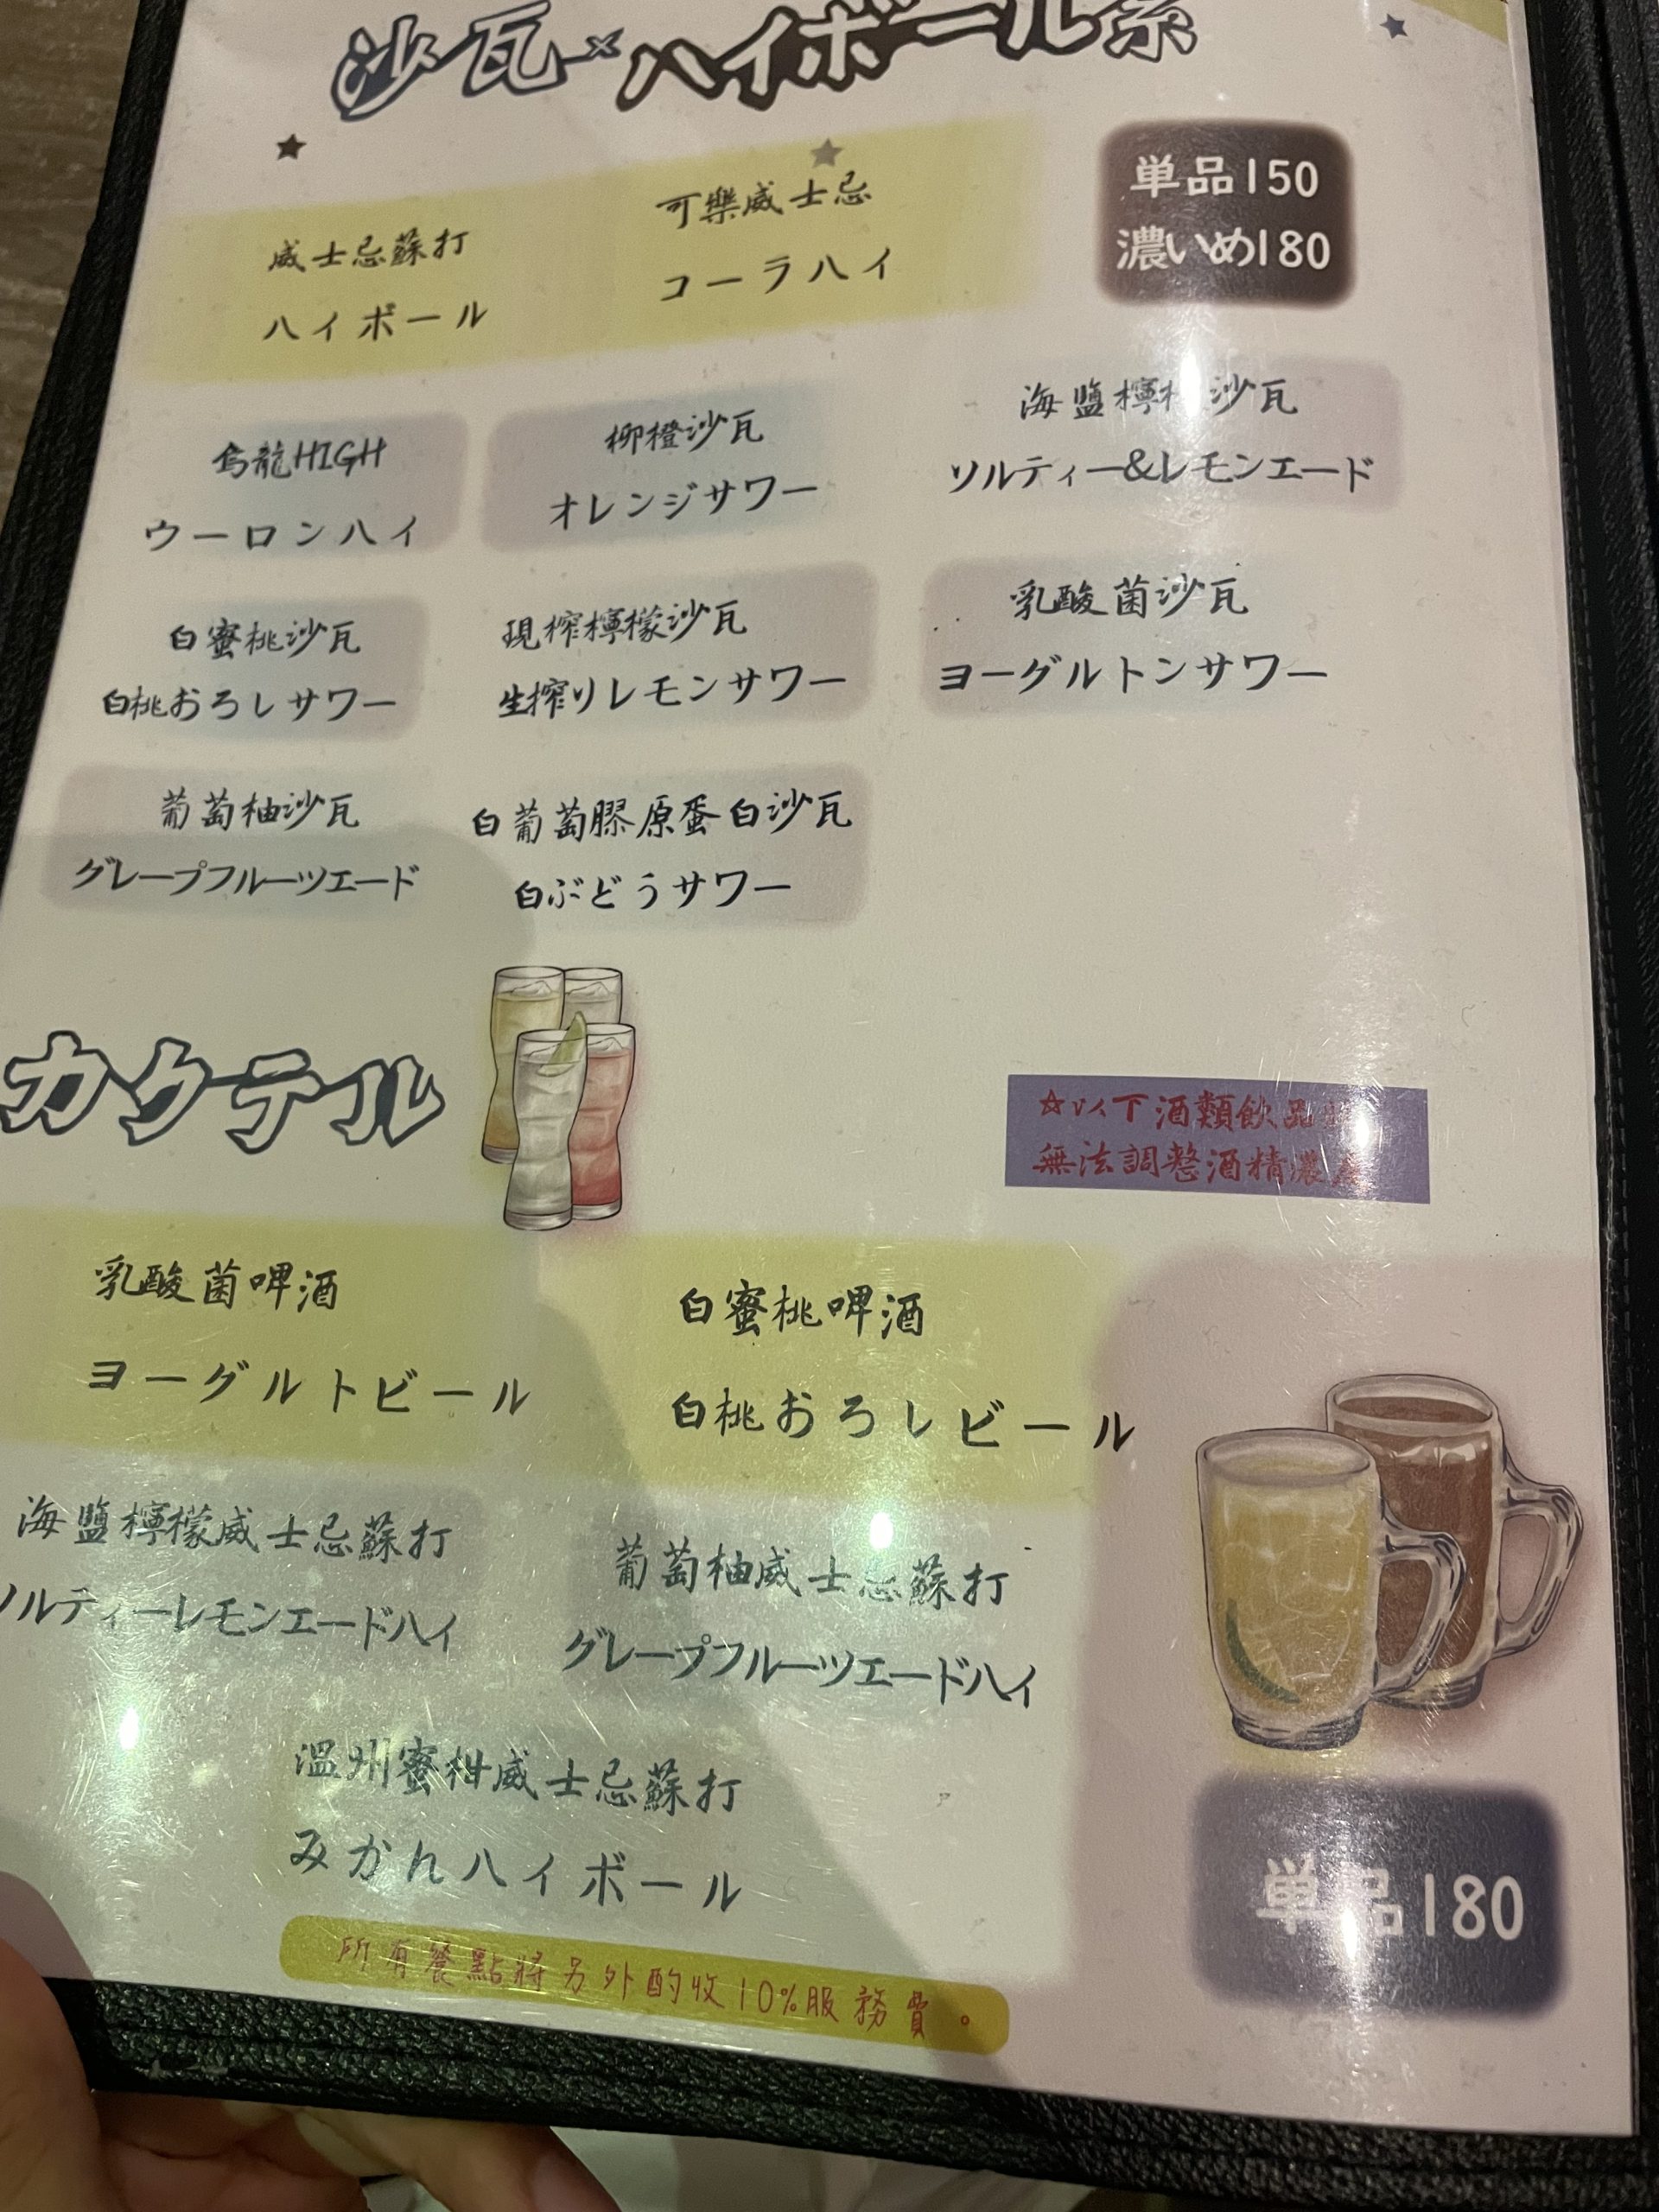 沙瓦×ハイボール系
単品150
濃いめ180
威士忌蘇打
ハイボール
可樂威士忌
コーラハイ
烏龍HIGH
ウーロンハイ
柳橙沙瓦
オレンジサワー
海鹽檸檬沙瓦
ソルティー&レモンエード
白蜜桃沙瓦
白桃おろしサワー
現榨檸檬沙瓦
生搾りレモンサワー
乳酸菌沙瓦
ヨーグルトンサワー
葡萄柚沙瓦
グレープフルーツエード
白葡萄膠原蛋白沙瓦
白ぶどうサワー
カクテル
☆以下酒類飲品
無法調整酒精濃
乳酸菌啤酒
ヨーグルトビール
白蜜桃啤酒
白桃おろしビール
海鹽檸檬威士忌蘇打
ソルティーレモンエードハイ
葡萄柚威士忌蘇打
グレープフルーツエードハイ
溫州蜜柑威士忌蘇打
みかんハイボール
単品180
所有餐點將另外酌收10%服務費。